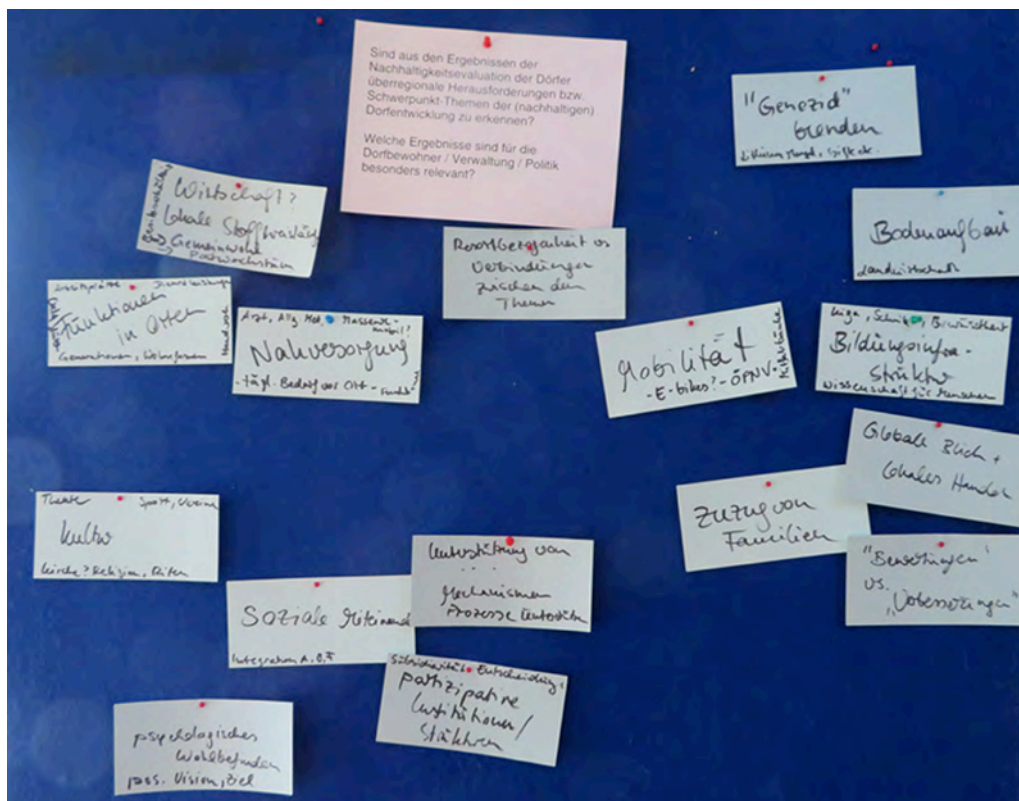 Sind aus den Ergebnissen der
Nachhaltigkeitsevaluation der Dörfer
überregionale Herausforderungen bzw.
Schwerpunkt-Themen der (nachhaltigen)
Dorfentwicklung zu erkennen?
Welche Ergebnisse sind für die
Dorfbewohner / Verwaltung / Politik
besonders relevant?
"Genozid"
benden
Wirtschaft?
lokale Stoffkreisläufe
Gemeinwohl
Postwachstum
Bodenaufbau
Landwirtschaft
Ressortbezogenheit vs
Verbindungen
zwischen den
Themen
Arbeitsplätze Dienstleistungen
Funktionen
in Orten
Generationen, Wohnformen
Arzt, Allg. Med.,
mobil?
Nahversorgung
- tägl. Bedarf vor Ort -
Mobilität
- E-bikes? - ÖPNV -
Bildungsinfra-
struktur
Wissenschaft für Menschen
Globale Blick +
lokales Handeln
Zuzug von
Familien
"Bewertungen"
vs.
"Verbesserungen"
Theater Sport, Vereine
Kultur
Kirche? Religion, Riten
Unterstützung von
....
Mechanismen
Prozesse Unterstützen
Soziale Miteinand
Integration A.B.F
Subsidiarität Entscheidung
partizipative
Institutionen/
Strukturen
psychologisches
Wohlbefinden
pos. Vision, Ziel